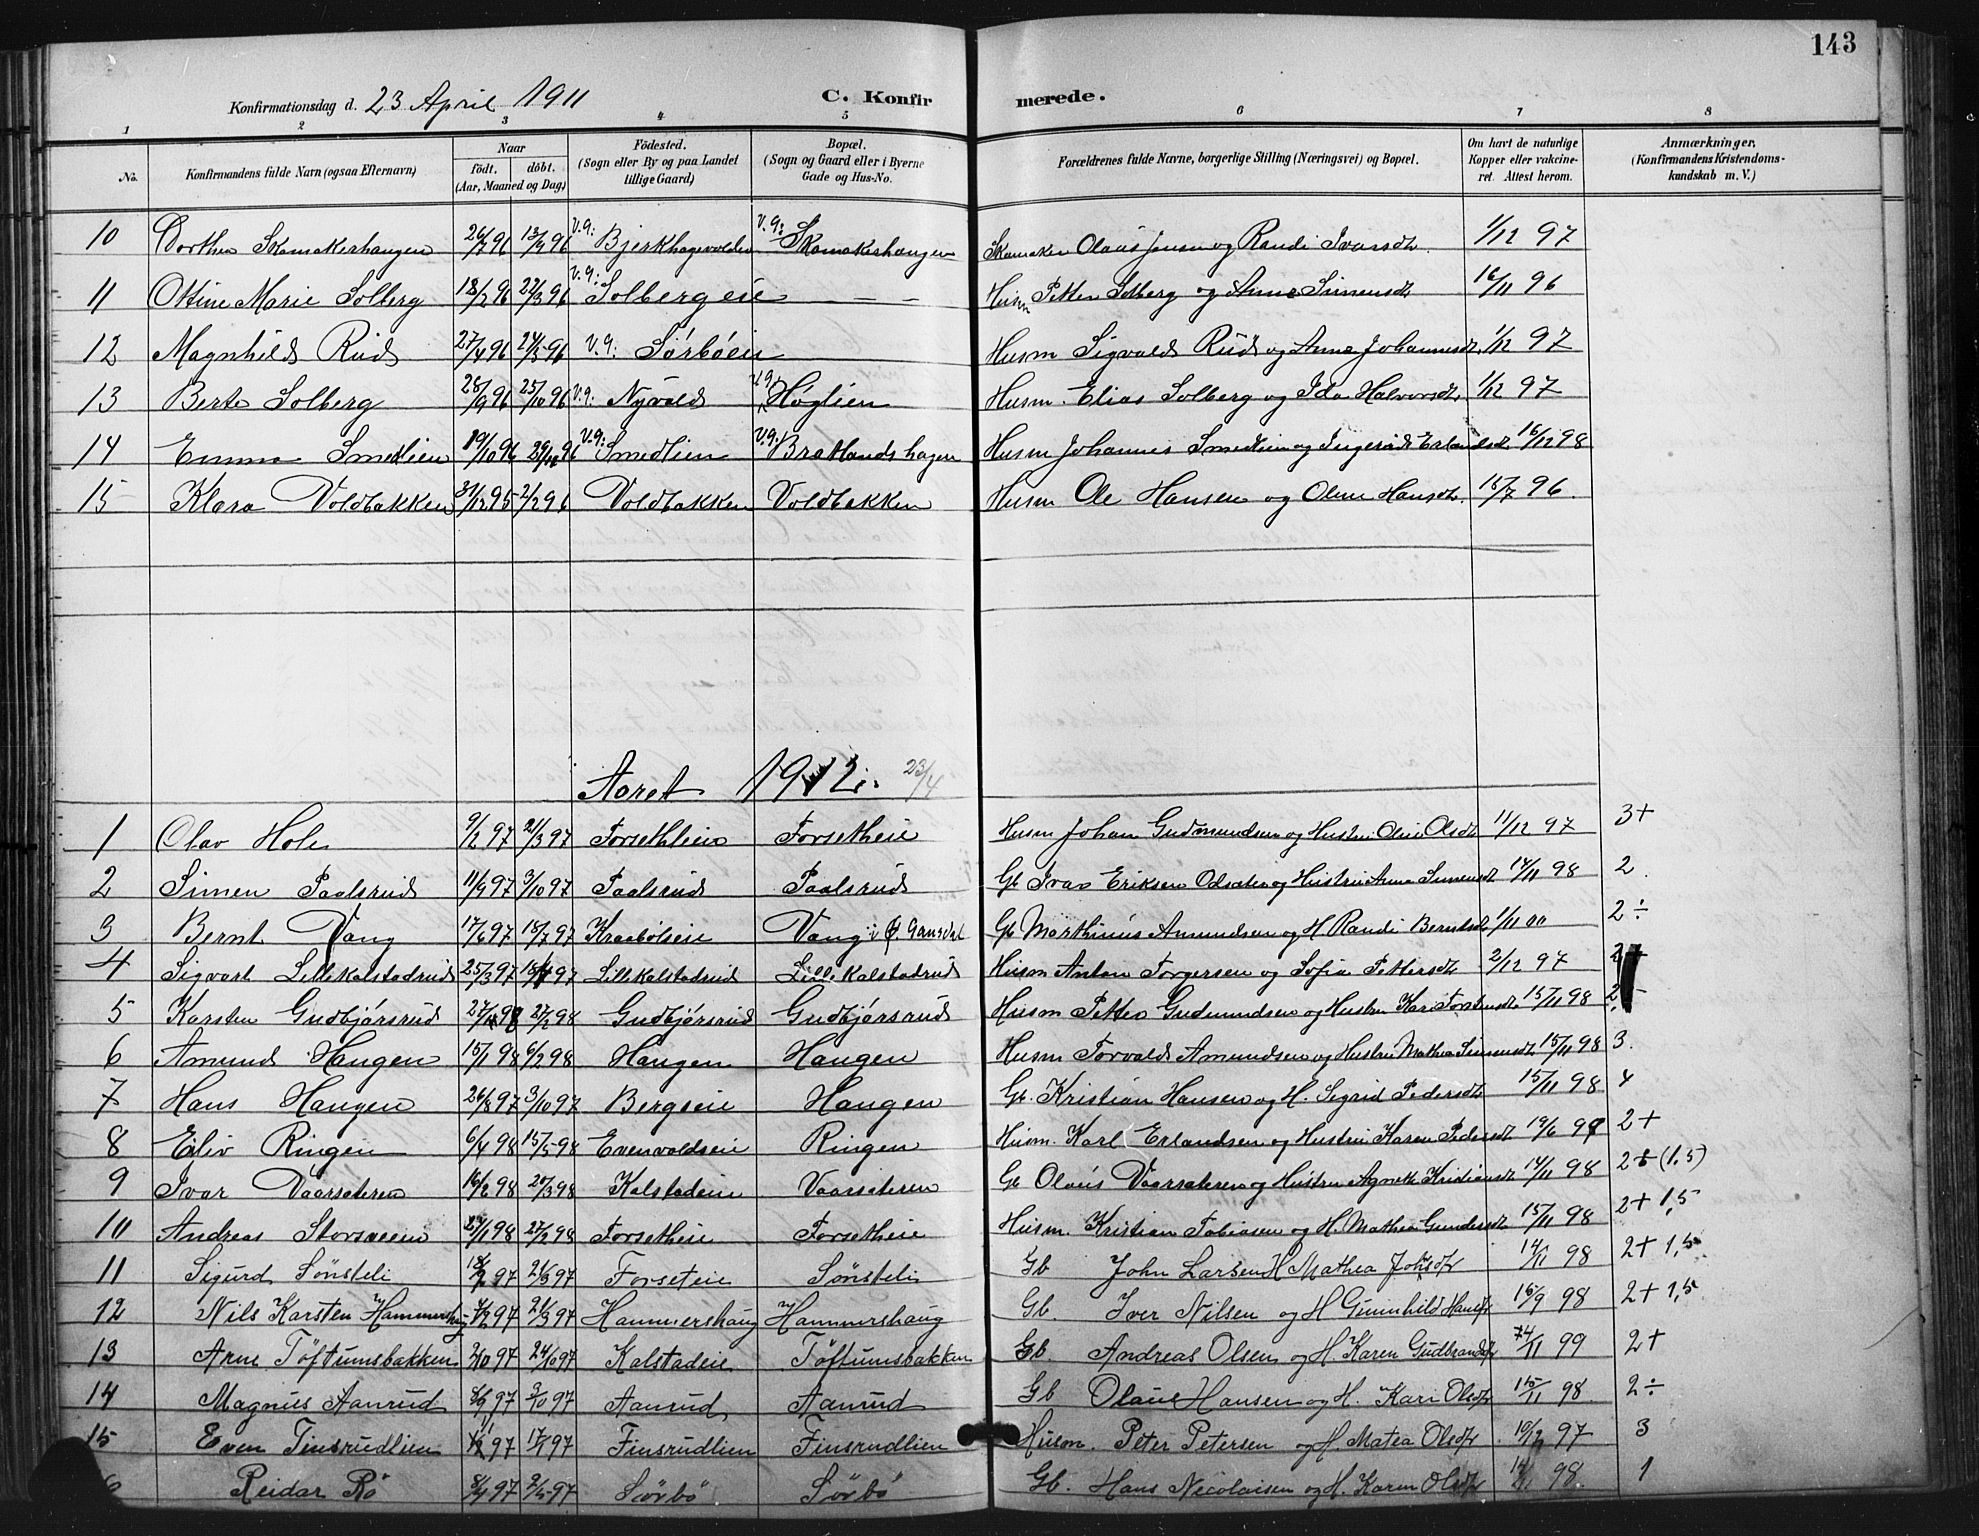 143
Konfirmationsdag d. 23 April 1911 C. Konfirmerede.
1 2 3 4 5 6 7 8
No. Konfirmandens fulde Navn (ogsaa Efternavn) Naar født. døbt. (Aar, Maaned og Dag) Fødested. (Sogn eller By og paa Landet tillige Gaard) Bopæl. (Sogn og Gaard eller i Byerne Gade og Hus-No. Forældrenes fulde Navne, borgerlige Stilling (Næringsvei) og Bopæl. Om havt de naturlige Kopper eller vakcineret. Attest herom. Anmærkninger. (Konfirmandens Kristendomskundskab m. V.)
10 Dorthea Skomakerhaugen 26/7 96 13/9 96 V.g: Bjerkhagevolden V.g: Skomakerhaugen Skomaker Olaus Jensen og Randi Ivarsdt. 1/12 97
11 Ottine Marie Solberg 18/2 96 22/3 96 V.g: Solbergeie — — Husm Petter Solberg og Anne Simensdt 16/11 96
12 Magnhild Rud 27/4 96 24/5 96 V.g: Sørbøeie Husm Sigvald Rud og Anne Johannesdt. 1/12 97
13 Berte Solberg 28/9 96 25/10 96 V.g: Nyvold V.g. Høglien Husm. Elias Solberg og Ida Halvorsdt. 1/12 97
14 Emma Smedlien 19/10 96 29/11 96 V.g: Smedlien V.g: Bratlandshagen Husm Johannes Smedlien og Ingerid Erlandsdt. 16/12 98
15 Klara Voldbakken 31/12 95 2/2 96 Voldbakken Voldbakken Husm Ole Hansen og Oline Hansdt. 15/7 96.
Aaret 1912. 23/4
1 Olav Hole 9/2 97 21/3 97 Forsethleie Forsetheie Husm Johan Gudmundsen og Hustru Oline Olsdt 11/12 97 3+
2 Simen Paalsrud 11/9 97 3/10 97 Paalsrud Paalsrud Gb Ivar Eriksen Odsater og Hustru Anne Simensdt 14/11 98 2.
3 Bernt Vang 17/6 97 18/7 97 Kraabøleie Vang i Ø. Gausdal Gb Marthinus Amundsen og H Randi Berntsdt 1/11 00 2÷
4 Sigvart Lillekalstadrud 25/3 97 97 Lillekalstadrud Lillekalstadrud Husm Anton Torgersen og Sofia Pettersdt 2/12 97
5 Karsten Gudbjørsrud 98 27/2 98 Gudbjørsrud Gudbjørsrud Husm Petter Gudmundsen og Hustru Kari Torstensdt. 15/11 98
6 Amund Haugen 15/1 98 6/2 98 Haugen Haugen Husm Torvald Amundsen og Hustru Mathea Simensdt. 15/11 98 3.
7 Hans Haugen 26/8 97 3/10 97 Bergseie Haugen Gb. Kristian Hansen og H. Sigrid Pedersdt 15/11 98 4
8 Eiliv Ringen 6/4 98 15/5 98 Evenvoldseie Ringen Husm. Karl Erlandsen og Hustru Karen Pedersdt 19/6 99 2+
9 Ivar Vaarsæteren 16/2 98 20/3 98 Kalstadeie Vaarsæteren Gb Olaus Vaarsæteren og Hustru Agnete Kristiansdt 14/11 98 2+ (1,5)
10 Andreas Storsveen 98 27/2 98 Forsetheie Forsetheie Husm. Kristian Tobiasen og H. Mathea Gundersdt 15/11 98 2+ 1,5
11 Sigurd Sønsteli 97 21/3 97 Forseteie Sønsteli Gb John Larsen H Mathea Johsdtr 14/11 98 2+ 1,5
12 Nils Karsten Hammershaug 97 21/3 97 Hammershaug Hammershaug Gb. Iver Nilsen og H Gunnhild Hansdtr 16/9 98 2+ 1,5
13 Arne Tøftumsbakken 2/10 97 24/10 97 Kalstadeie Tøftumsbakken Gb. Andreas Olsen og H. Karen Gudbrandsdtr 11 99 2+
14 Magnus Aanrud 97 3/10 97 Aanrud Aanrud Gb Olaus Hansen og H. Kari Olsdtr 15/11 98 2÷
15 Even Finsrudlien 97 97 Finsrudlien Finsrudlien Husm. Peter Petersen og H. Matea Olsdtr 10/12 97 3
Reidar Rø 97 97 Sørbø Sørbø Gb. Hans Nicolaisen og H. Karen Olsdtr 14/11 98. 1